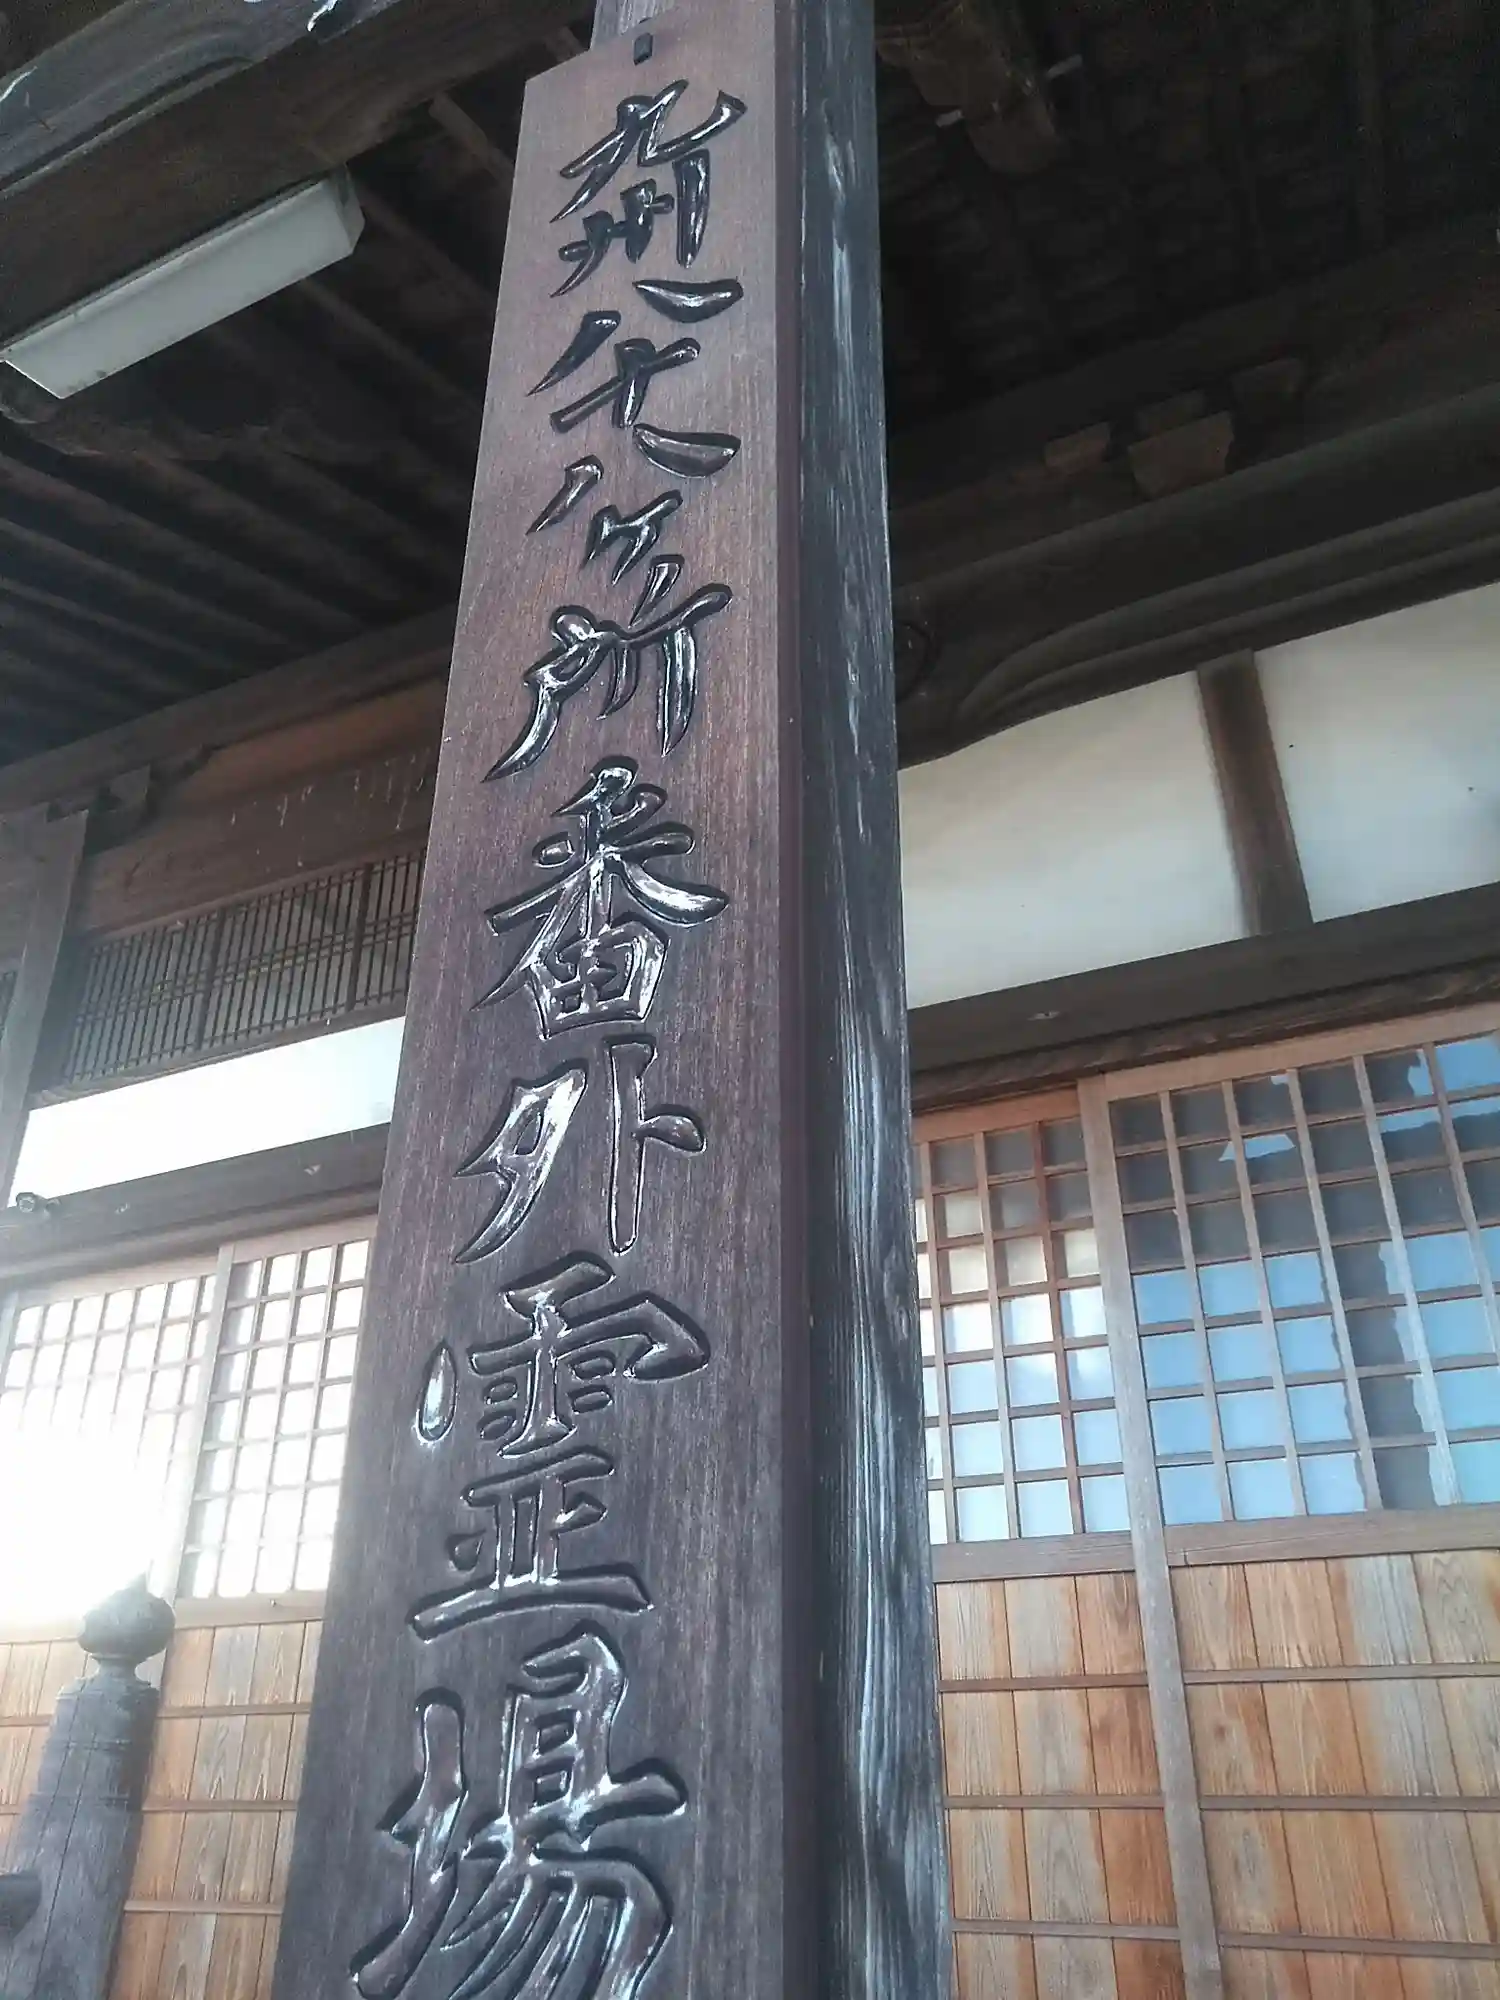 九州八十八ヶ所番外霊場